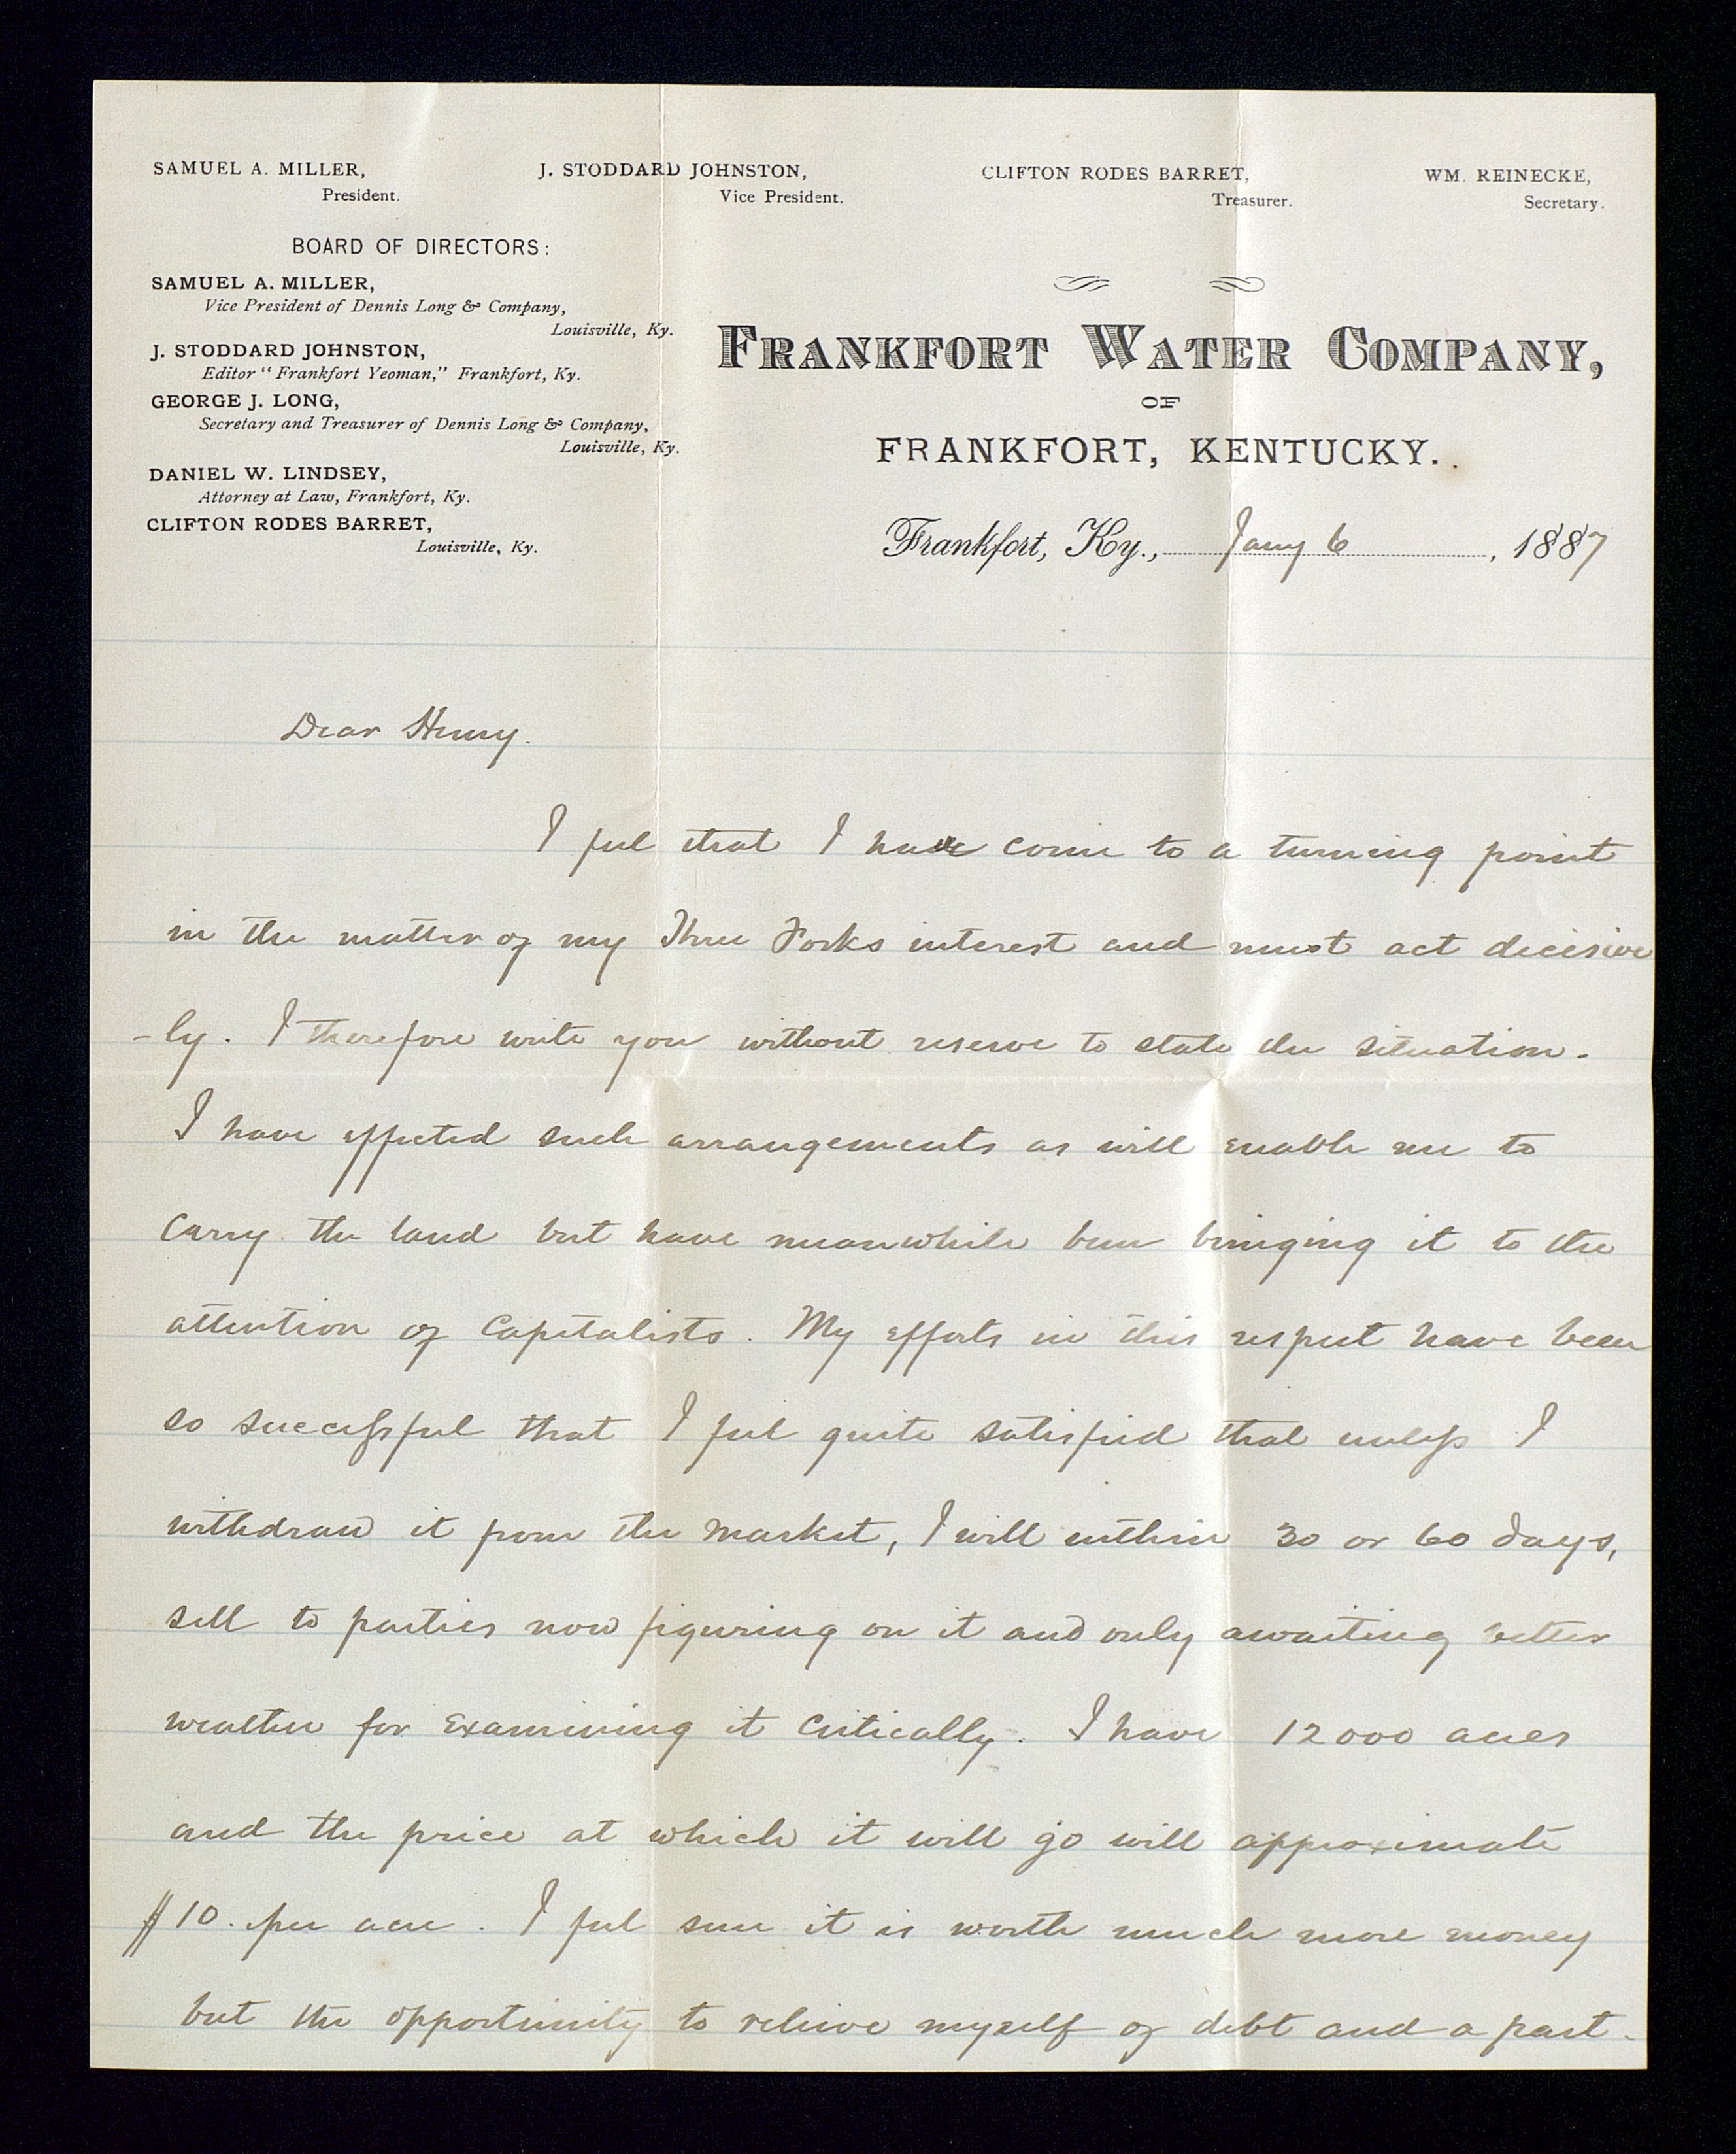 SAMUEL A. MILLER, President.
J. STODDARD JOHNSTON, Vice President.
CLIFTON RODES BARRET, Treasurer.
WM. REINECKE, Secretary.
BOARD OF DIRECTORS:
SAMUEL A. MILLER,
Vice President of Dennis Long & Company,
Louisville, Ky.
J. STODDARD JOHNSTON,
Editor "Frankfort Yeoman," Frankfort, Ky.
GEORGE J. LONG,
Secretary and Treasurer of Dennis Long & Company,
Louisville, Ky.
DANIEL W. LINDSEY,
Attorney at Law, Frankfort, Ky.
CLIFTON RODES BARRET,
Louisville, Ky.
FRANKFORT WATER COMPANY,
OF
FRANKFORT, KENTUCKY.
Frankfort, Ky., Jany 6, 1887
Dear Henry.
I feel that I have come to a turning point
in the matter of my Three Forks interest and must act decisive
-ly. I therefore write you without reserve to state the situation.
I have effected such arrangements as will enable me to
carry the land but have meanwhile been bringing it to the
attention of Capitalists. My efforts in this respect have been
so successful that I feel quite satisfied that unless I
withdraw it from the market, I will within 30 or 60 days,
sell to parties now figuring on it and only awaiting better
weather for examining it critically. I have 12000 acres
and the price at which it will go will approximate
$10. per acre. I feel sure it is worth much more money
but the opportunity to relieve myself of debt and a past.